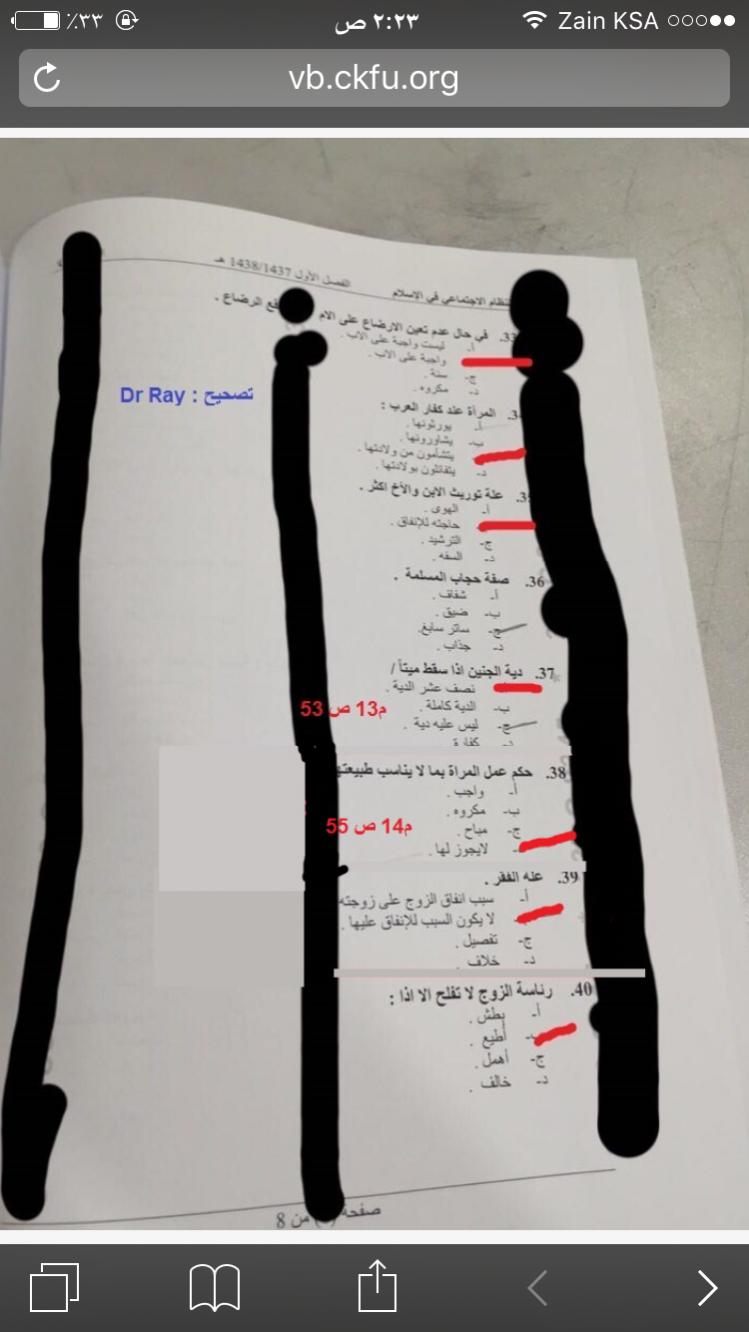 ٪٣٣
٢:٢٣ ص
Zain KSA
vb.ckfu.org
الفصل الأول 1438/1437 هـ
النظام الاجتماعي في الاسلام
33. في حال عدم تعين الارضاع على الام
فع الرضاع .
أ- ليست واجبة على الاب .
واجبة على الاب .
ج- سنة .
د- مكروه .
تصحيح : Dr Ray
3 المرأة عند كفار العرب :
أ- يورثونها .
ب- يشاورونها .
يتشأمون من ولادتها .
د- يتفائلون بولادتها .
35. علة توريث الابن والأخ اكثر .
أ- الهوى .
حاجته للإنفاق .
ج- الترشيد .
د- السفه .
36. صفة حجاب المسلمة .
أ- شفاف .
ب- ضيق .
ج- ساتر سابغ.
د- جذاب .
37. دية الجنين اذا سقط ميتاً /
نصف عشر الدية .
ب- الدية كاملة .
م13 ص 53
ج- ليس عليه دية .
د- كفارة
38. حكم عمل المراة بما لا يناسب طبيعته
أ- واجب .
ب- مكروه .
ج- مباح .
م14 ص 55
لايجوز لها .
39. عنه الفقر .
أ- سبب انفاق الزوج على زوجته
ب- لا يكون السبب للإنفاق عليها .
ج- تفصيل .
د- خلاف .
40. رئاسة الزوج لا تفلح الا اذا :
أ- بطش .
ب- أطيع .
ج- أهمل .
د- خالف .
صفحة من 8